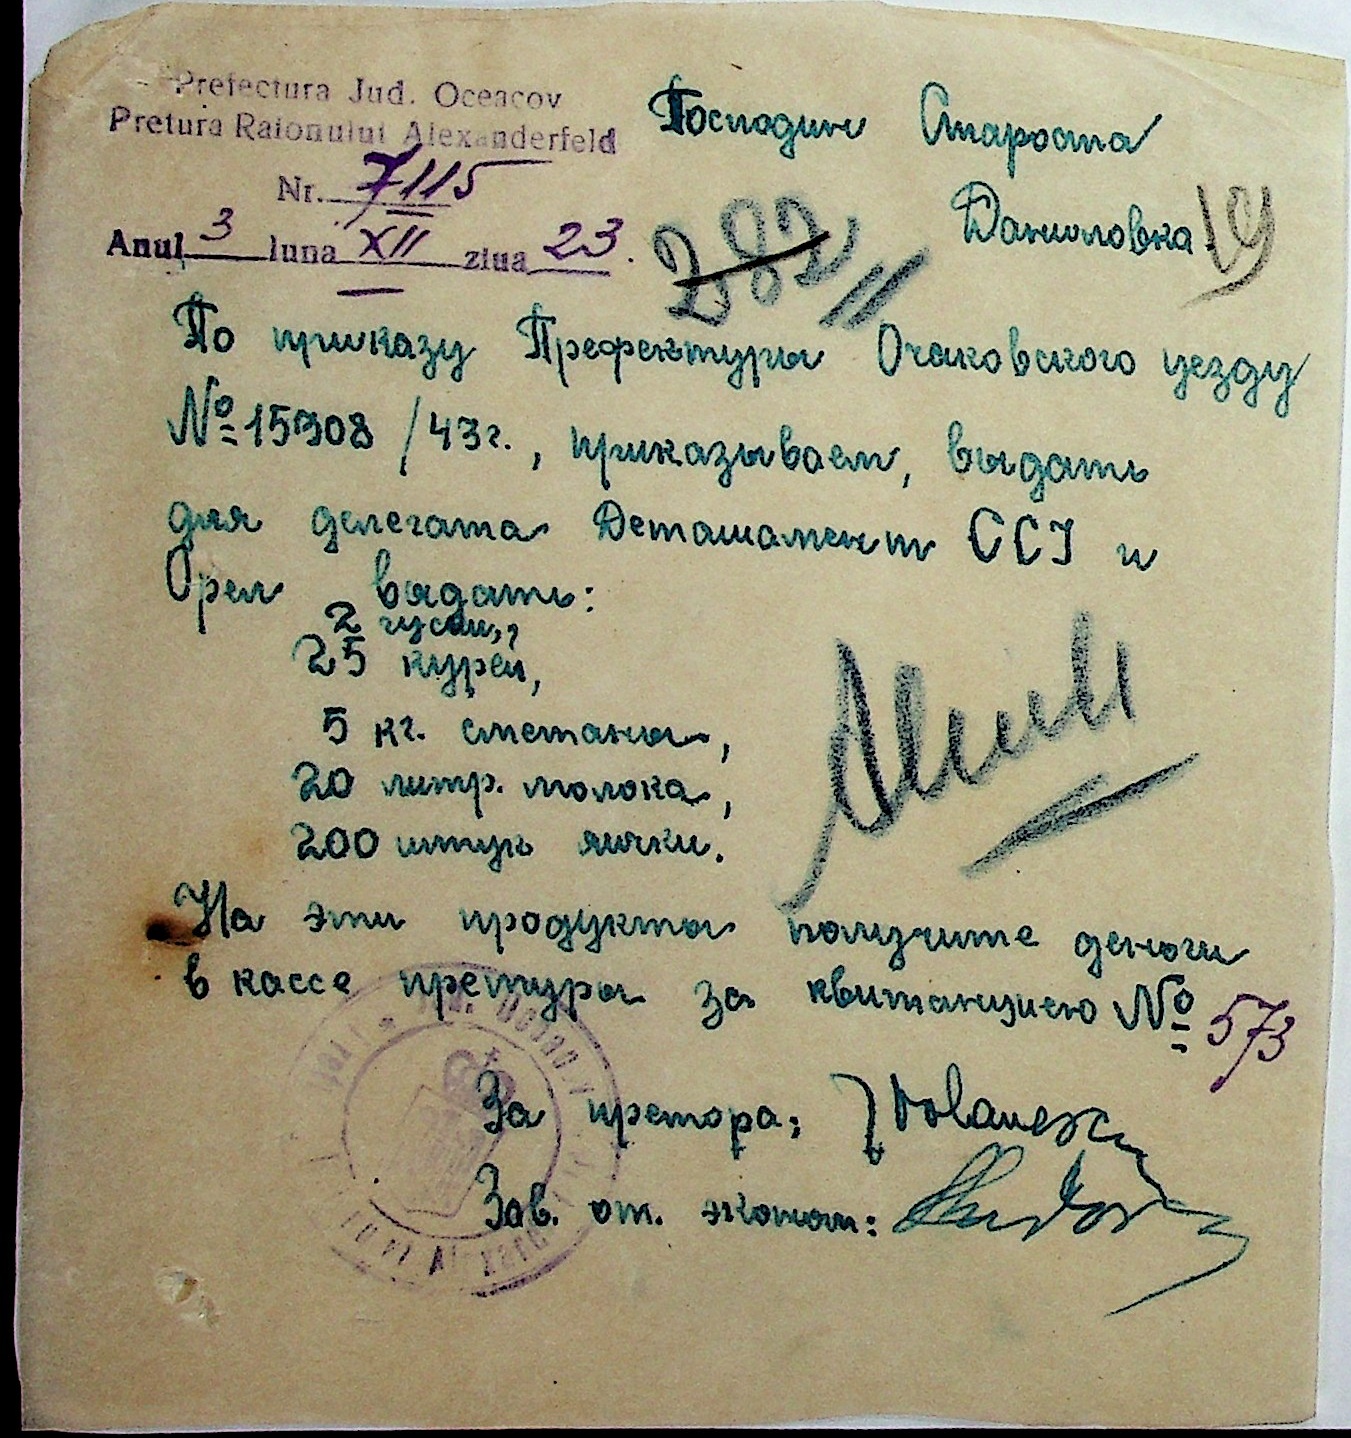 Prefectura Jud. Oceacov
Pretura Raionului Alexanderfeld
Nr. 7115
Anul 3 luna XII ziua 23.
Господин Староста
Даниловка
19
282
По приказу Префектуры Очаковского уезду
№ 15908 /43г., приказываем, выдать
для делегата Деташамент ССI и
Орел выдать:
2 гусей,,
25 курей,
5 кг. сметаны,
20 литр. молока,
200 штук яички.
На эти продукты получите деньги
в кассе претуры за квитанцией № 573
За претора:
Зав. от. эконом: